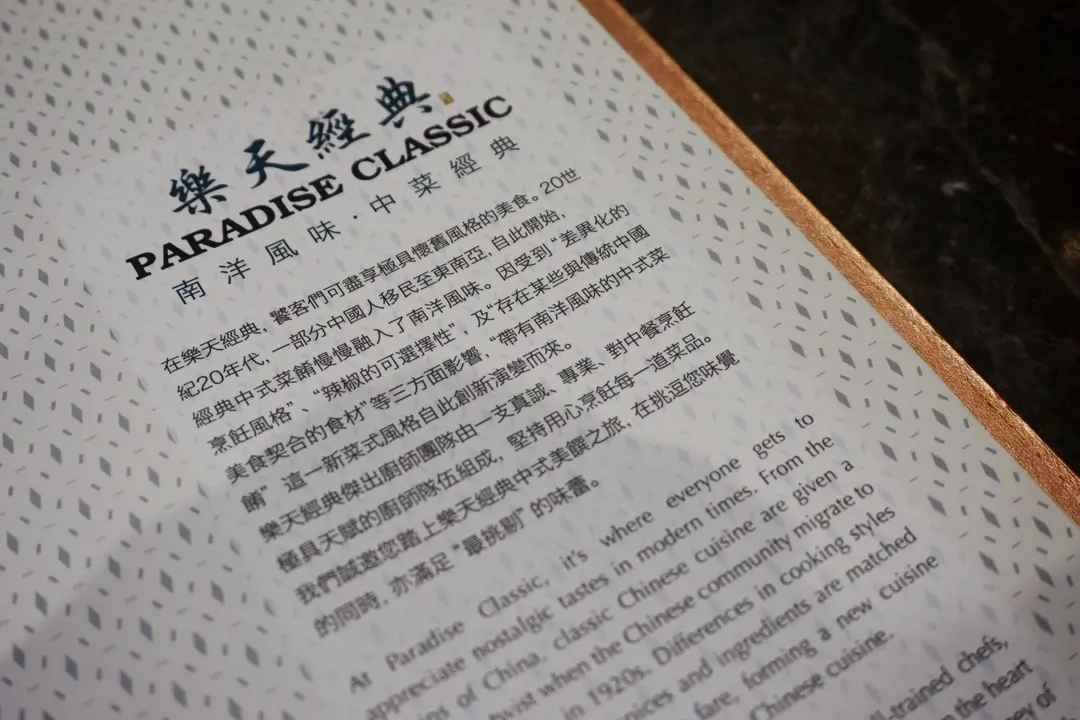 樂天經典
PARADISE CLASSIC
南洋風味·中菜經典
在樂天經典，饕客們可盡享極具懷舊風格的美食。20世
紀20年代，一部分中國人移民至東南亞，自此開始，
經典中式菜餚慢慢融入了南洋風味。因受到“差異化的
烹飪風格”、“辣椒的可選擇性”，及“存在某些與傳統中國
美食契合的食材”等三方面影響，“帶有南洋風味的中式菜
餚”這一新菜式風格自此創新演變而來。
樂天經典傑出廚師團隊由一支真誠、專業、對中餐烹飪
極具天賦的廚師隊伍組成，堅持用心烹飪每一道菜品。
我們誠邀您踏上樂天經典中式美饌之旅，在挑逗您味覺
的同時，亦滿足“最挑剔”的味蕾。
At Paradise Classic, it's where everyone gets to
appreciate nostalgic tastes in modern times. From the
of China, classic Chinese cuisine are given a
twist when the Chinese community migrate to
in 1920s. Differences in cooking styles
and ingredients are matched
fare, forming a new cuisine
Chinese cuisine.
chefs,
the heart
of